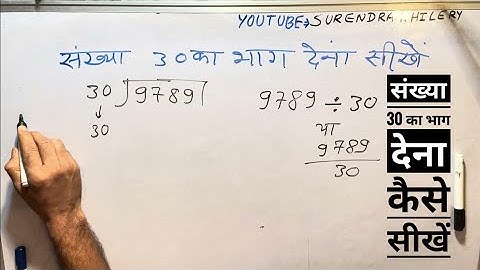 YOUTUBE→SURENDRA KHILERY
संख्या 30 का भाग देना सीखें
30 9789
↓
30
9789 ÷ 30
या
9789
30
संख्या
30 का भाग
देना
कैसे
सीखें